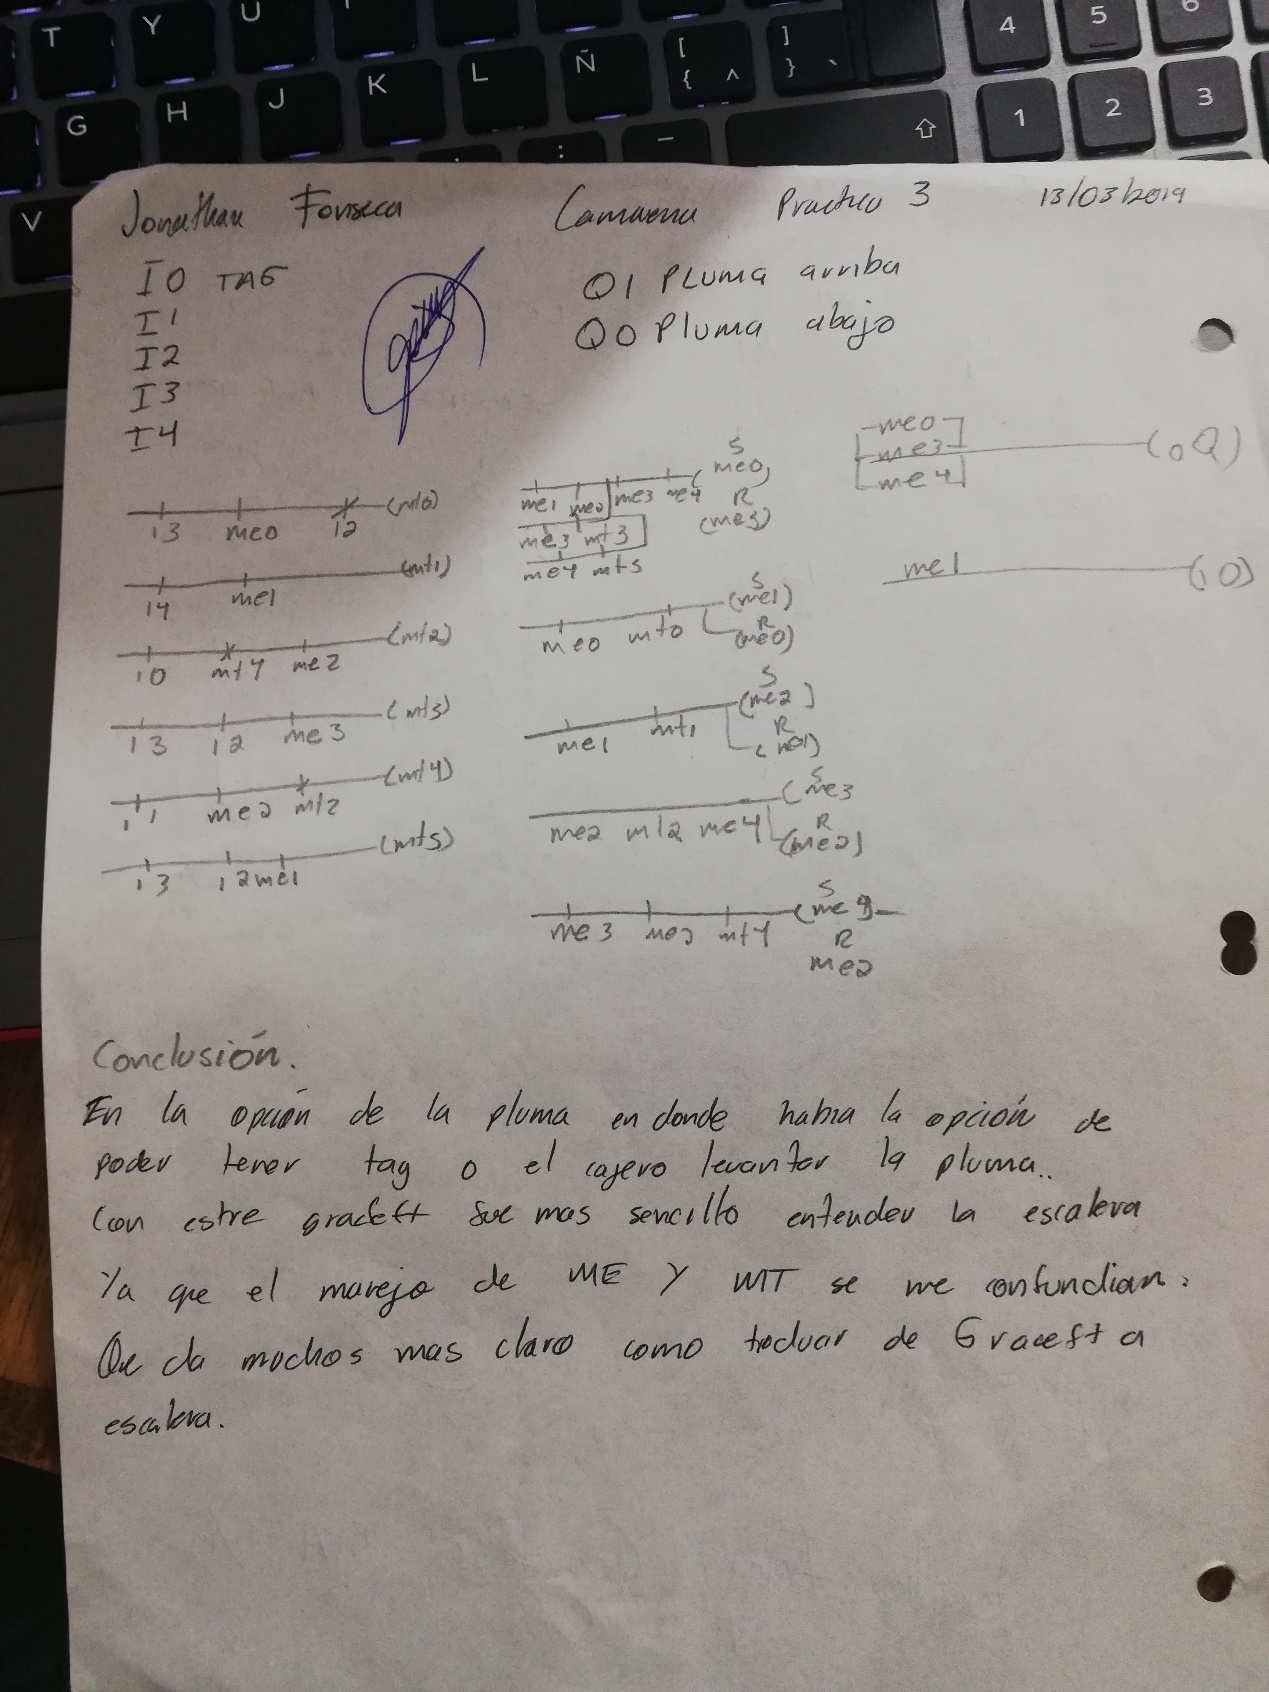 T Y U
G H J K L Ñ [ { ^ ] } `
V : – 4 5 6
1 2 3
Jonathan Fonseca Camarena Practica 3 13/03/2019
I0 TAG
I1
I2
I3
I4
Q1 PLUMA arriba
Q0 Pluma abajo
(mt0)
i3 me0 i2
(mt1)
i4 me1
(mt2)
i0 mt4 me2
(mt3)
i3 i2 me3
(mt4)
i1 me2 mt2
(mt5)
i3 i2 me1
S
(me0)
me1 me2 me3 me4 R
me3 mt3
me4 mt5
S
(me1)
me0 mt0 R
(me0)
S
(me2)
me1 mt1 R
(me1)
S
(me3
me2 mt2 me4 R
(me2)
S
(me4)
me3 me2 mt4 R
me2
me0
me3 (0Q)
me4
me1
Conclusión.
En la opción de la pluma en donde habia la opción de
poder tener tag o el cajero levantar la pluma..
Con estre graceft fue mas sencillo entender la escalera
Ya que el manejo de ME y MT se me confundian.
Que da muchos mas claro como traducir de Graceft a
escalera.